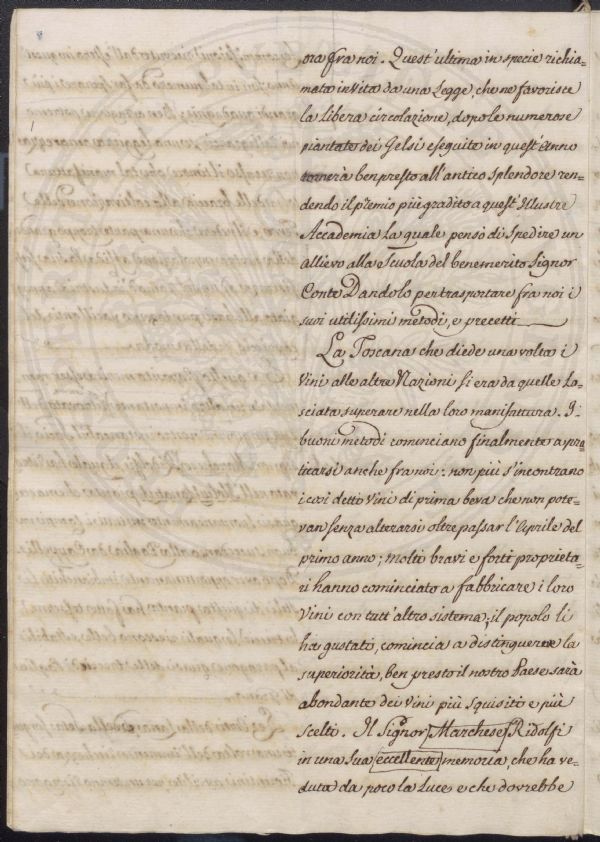 ora fra noi. Quest'ultima in specie richia=
mata in vita da una Legge, che ne favorisce
la libera circolazione, dopo le numerose
piantate dei Gelsi eseguite in quest'Anno
tornerà ben presto all'antico splendore ren=
dendo il premio più gradito a quest'Illustre
Accademia la quale pensò di spedire un
allievo alla Scuola del benemerito Signor
Conte Dandolo per trasportare fra noi i
suoi utilissimi metodi, e precetti
La Toscana che diede una volta i
Vini alle altre Nazioni si era da quelle la=
sciata superare nella loro manifattura. I
buoni metodi cominciano finalmente a pra=
ticarsi anche fra noi: non più s'incontrano
i così detti Vini di prima beva che non pote=
van senza alterarsi oltrepassar l'Aprile del
primo anno; molti bravi e forti proprieta=
ri hanno cominciato a fabbricare i loro
Vini con tutt'altro sistema; il popolo li
ha gustati, comincia a distinguerne la
superiorità, ben presto il nostro Paese sarà
abondante dei Vini più squisiti e più
scelti. Il Signor Marchese Ridolfi
in una sua eccellente memoria, che ha ve=
duta da poco la Luce e che dovrebbe